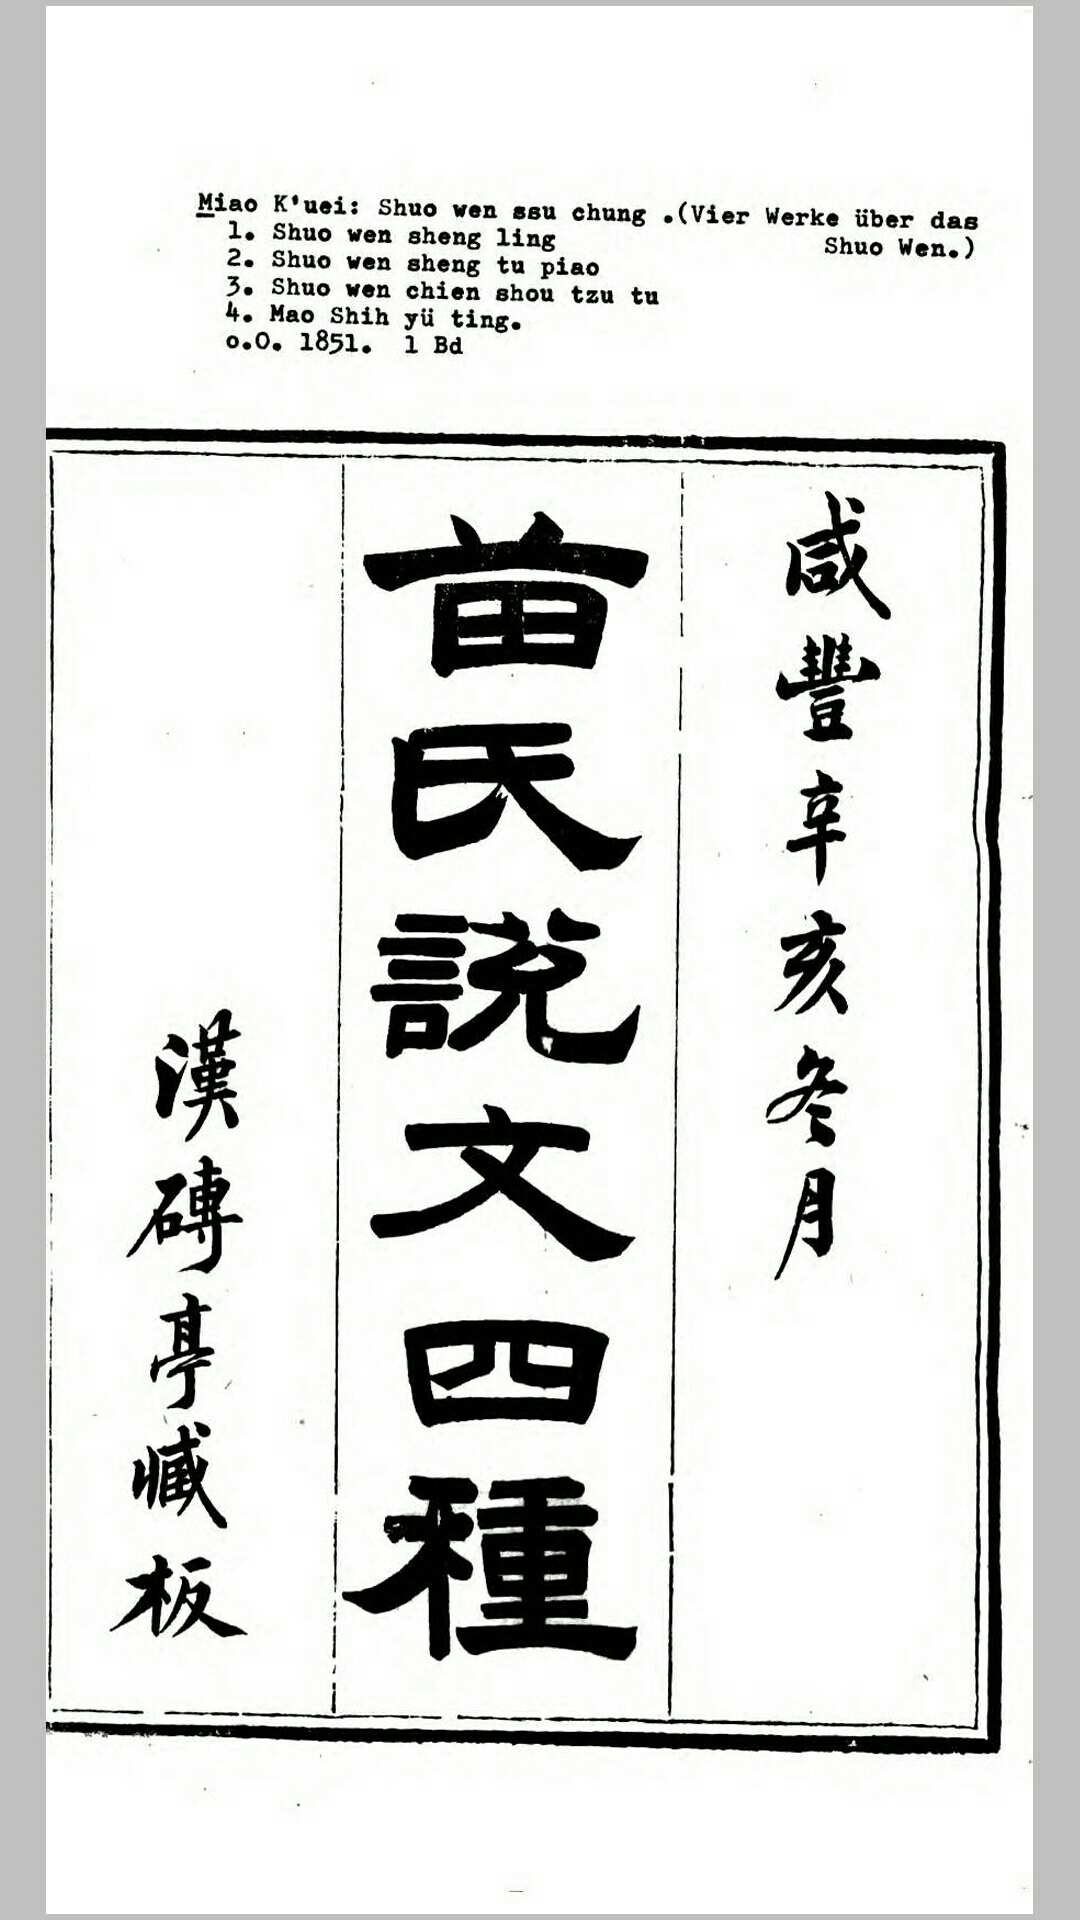 Miao K'uei: Shuo wen ssu chung .(Vier Werke über das
Shuo Wen.)
1. Shuo wen sheng ling
2. Shuo wen sheng tu piao
3. Shuo wen chien shou tzu tu
4. Mao Shih yü ting.
o.O. 1851. 1 Bd
咸豐辛亥冬月
苗氏說文四種
漢磚亭臧板